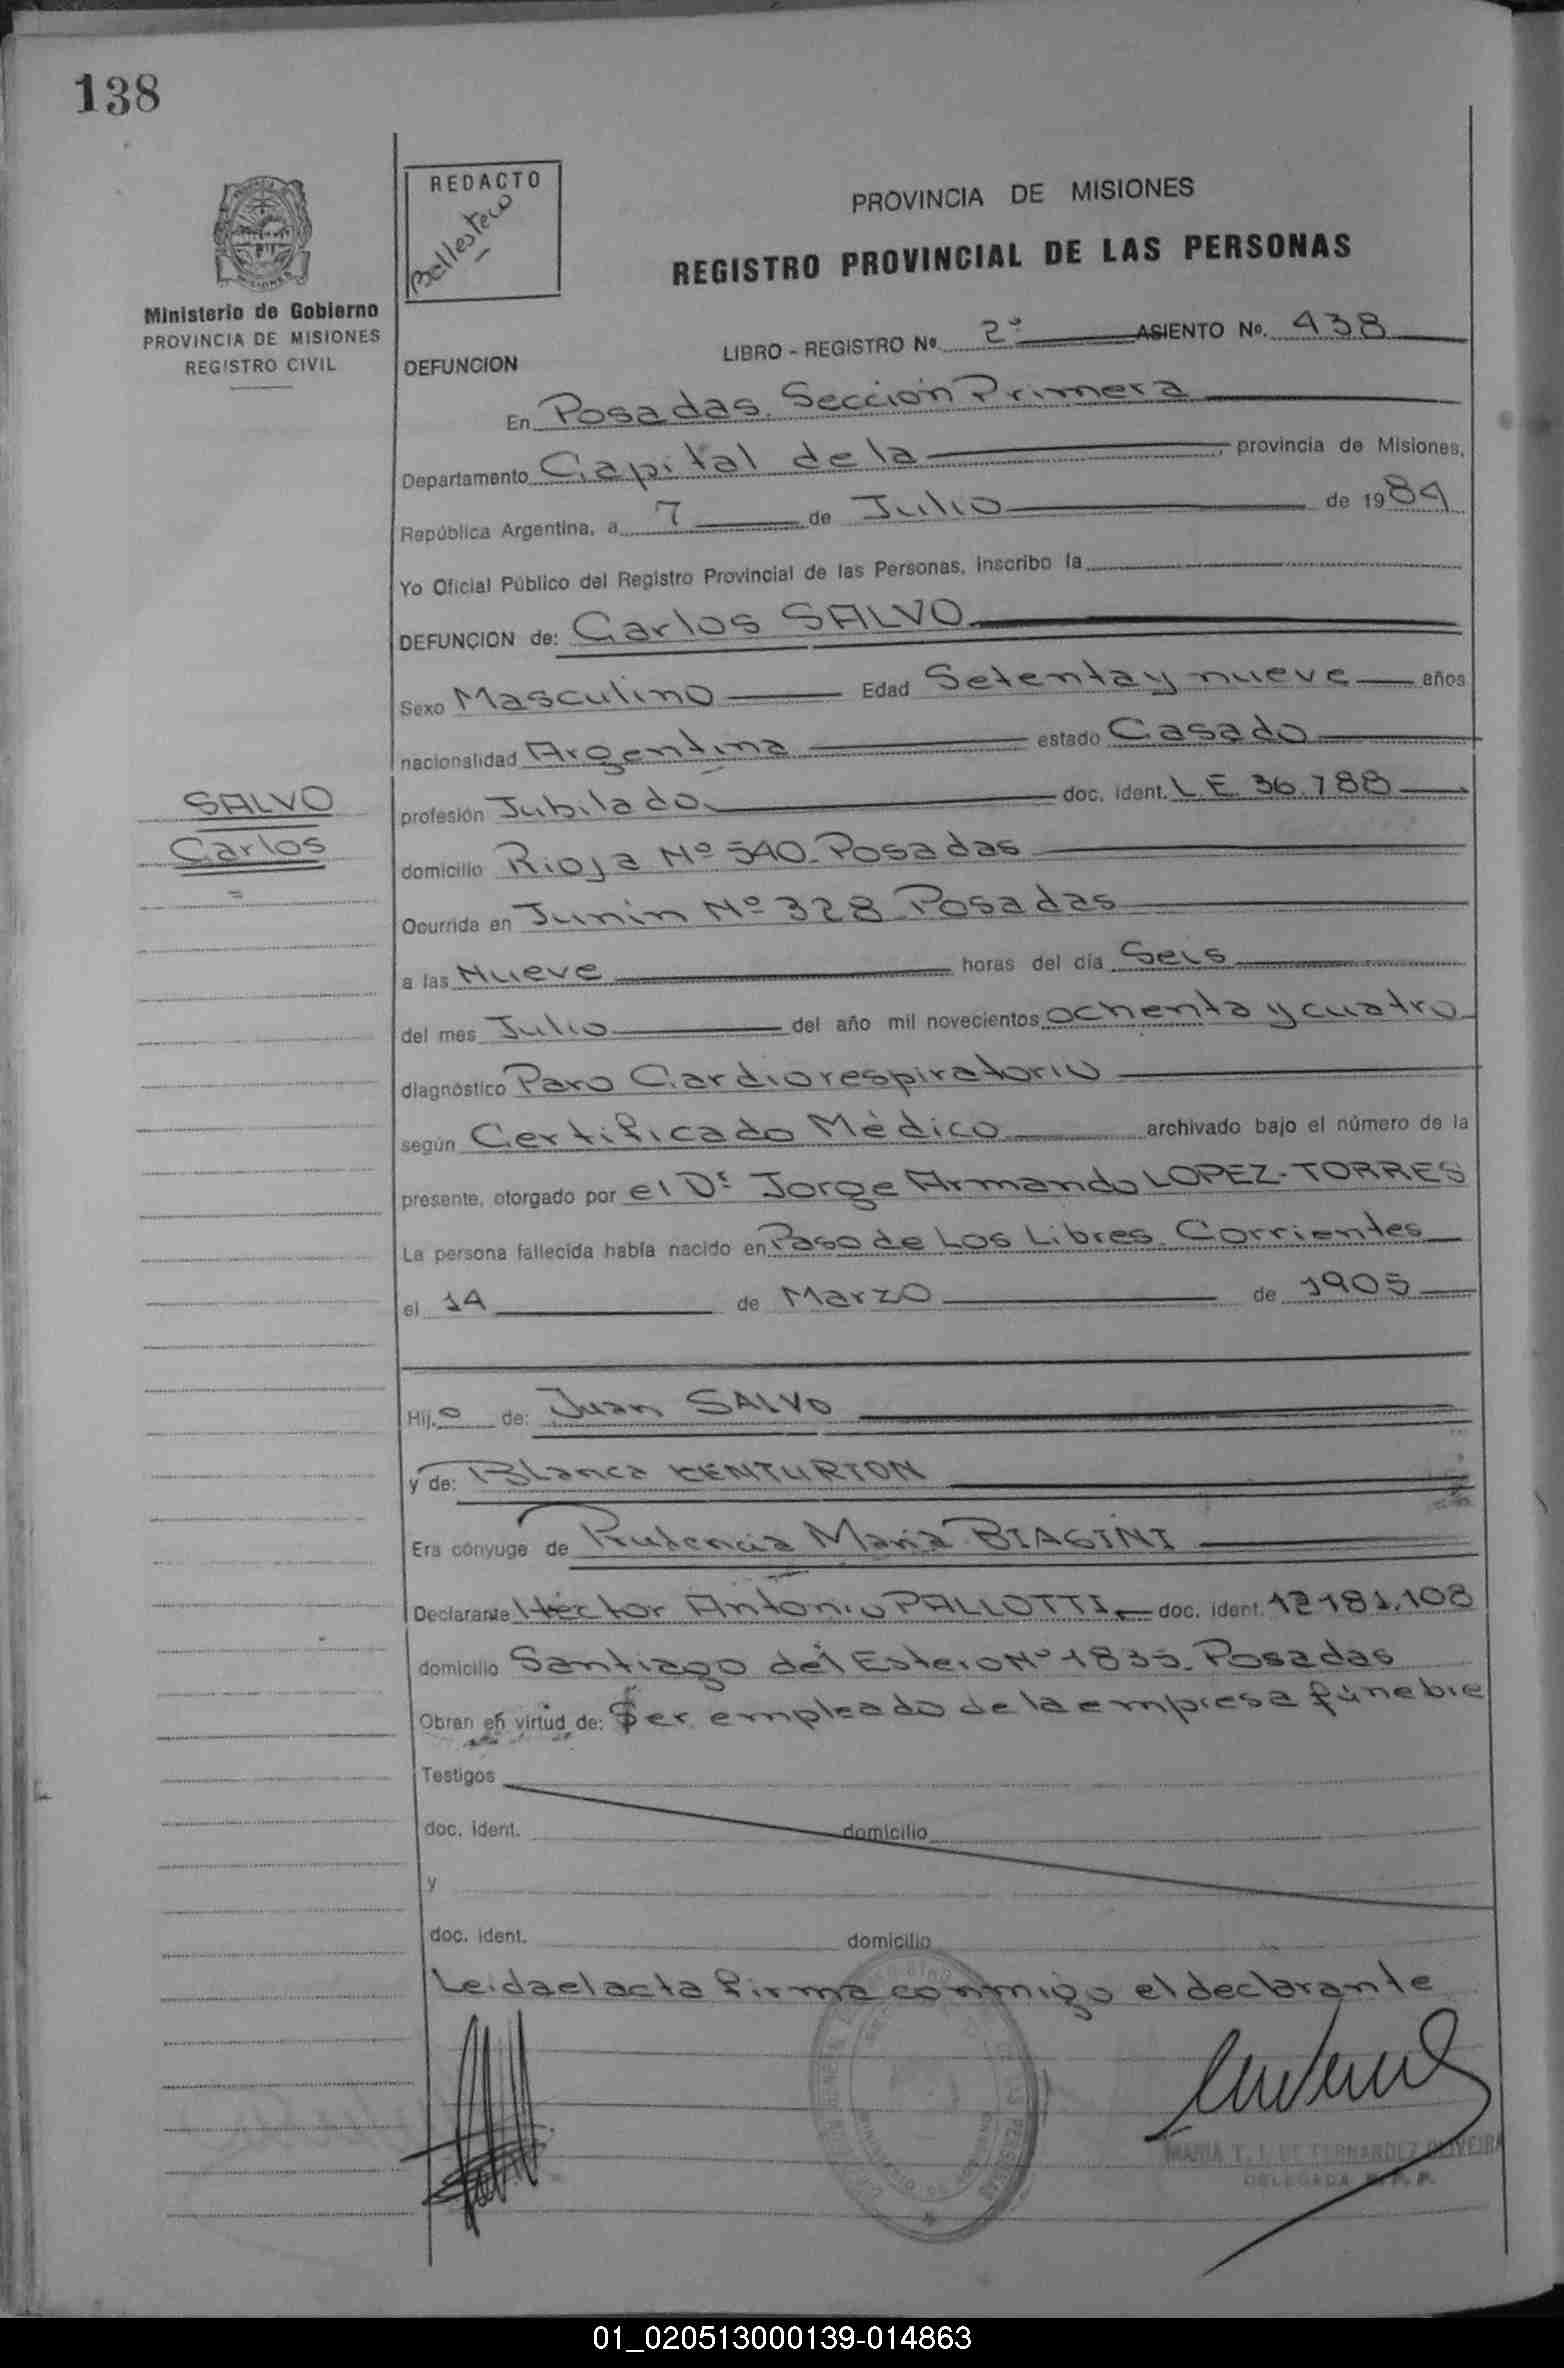 138
REDACTO
Ballestero
PROVINCIA DE MISIONES
REGISTRO PROVINCIAL DE LAS PERSONAS
Ministerio de Gobierno
PROVINCIA DE MISIONES
REGISTRO CIVIL
DEFUNCION
LIBRO - REGISTRO Nº 2º ASIENTO Nº. 438
En Posadas. Sección Primera
Departamento Capital de la , provincia de Misiones,
República Argentina, a 7 de Julio de 1984
Yo Oficial Público del Registro Provincial de las Personas, inscribo la
DEFUNCION de: Carlos SALVO
Sexo Masculino Edad Setenta y nueve años
nacionalidad Argentina estado Casado
SALVO
Carlos
profesión Jubilado doc. ident. L.E. 36.788
domicilio Rioja Nº 540. Posadas
Ocurrida en Junin Nº 328 Posadas
a las Nueve horas del día Seis
del mes Julio del año mil novecientos ochenta y cuatro
diagnóstico Paro Cardiorespiratorio
según Certificado Médico archivado bajo el número de la
presente, otorgado por el Dr Jorge Armando LOPEZ-TORRES
La persona fallecida había nacido en Paso de Los Libres. Corrientes
el 14 de Marzo de 1905
Hij o de: Juan SALVO
y de: Blanca CENTURION
Era cónyuge de Prudencia Maria BIAGINI
Declarante Héctor Antonio PALLOTTI doc. ident. 12.181.108
domicilio Santiago del Estero Nº 1835. Posadas
Obran en virtud de: Ser empleado de la empresa fúnebre
Testigos
doc. ident. domicilio
y
doc. ident. domicilio
Leida el acta firma conmigo el declarante
MARIA T. I. DE FERNANDEZ OLIVEIRA
DELEGADA R. P. P.
01_020513000139-014863